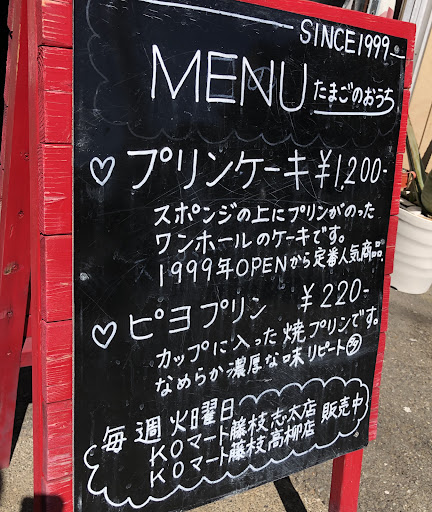 SINCE1999
MENU たまごのおうち
♡プリンケーキ ¥1,200-
スポンジの上にプリンがのった
ワンホールのケーキです。
1999年OPENから定番人気商品
♡ピヨプリン ¥220-
カップに入った焼プリンです。
なめらか濃厚な味リピート多
毎週火曜日
KOマート藤枝志太店 販売中
KOマート藤枝高柳店